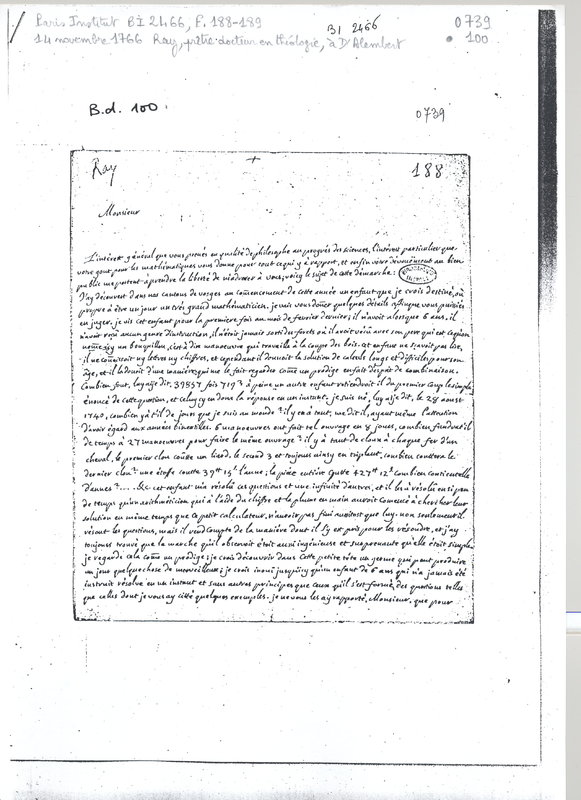 Paris Institut BI 2466, F. 188-189
BI 2466
0739
14 novembre 1766 Ray, prêtre docteur en théologie, à D'Alembert
100
B.d. 100.
0739
Ray
188
Monsieur
L'intérêt général que vous prenés en qualité de philosophe au progrès des sciences, l'intérêt particulier que
votre gout pour les mathématiques vous donne pour tout ce qui y a rapport, et enfin votre dévouëment au bien
public me portent à prendre la liberté de m'adresser à vous; voicy le sujet de cette démarche:
J'ay découvert dans nos cantons de vosges au commencement de cette année un enfant que je crois destiné, ou
propre à être un jour un très grand mathématicien. je vais vous donner quelques détails afin que vous puissiés
en juger. je vis cet enfant pour la première fois au mois de fevrier dernier; il n'avoit alors que 6 ans, il
n'avoit reçu aucun genre d'instruction, il n'étoit jamais sorti des forets où il avoit vécu avec son pere qui est
un bouquillon, c'est à dire manoeuvre qui travaille à la coupe des bois. cet enfant ne sçavoit pas lire,
il ne connoissoit ny lettres ny chiffres, et cependant il donnoit la solution de calculs longs et difficiles pour son
âge, et il la donnoit d'une manière qui me le fait regarder comme un prodige en fait d'esprit de combinaison.
Combien font, luy aije dit, 39857 fois 719? à peine un autre enfant retiendroit il du premier coup le simple
énoncé de cette question, et celuy cy en donne la réponse en un instant. je suis né, luy aije dit, le 28 aoust
1740, combien y a t'il de jours que je suis au monde? il y en a tant, me dit il, ayant même l'attention
d'avoir égard aux années bissextiles. 6 manoeuvres ont fait tel ouvrage en 8 jours, combien faudroit il
de temps à 27 manoeuvres pour faire le même ouvrage? il y a tant de cloux à chaque fer d'un
cheval, le premier clou coutte un liard, le second 3 et toujours ainsy en triplant, combien couttera le
dernier clou? une étoffe coutte 39# 15s l'aune; la pièce entière coutte 427# 12s combien contient elle
d'aunes? .... &c cet enfant m'a résolu ces questions et une infinité d'autres, et il les a résolu en si peu
de temps qu'un arithméticien qui à l'aide du chiffre et la plume en main auroit comencé à chercher leur
solution en même temps que ce petit calculateur, n'auroit pas fini aussitost que luy. non seulement il
résout les questions, mais il rend compte de la manière dont il s'y est pris pour les résoudre, et j'ay
toujours trouvé que la marche qu'il observoit étoit aussi ingénieuse et surprenante qu'elle étoit simple.
je regarde cela comme un prodige; je crois découvrir dans cette petite tête un germe qui peut produire
un jour quelque chose de merveilleux; je crois inoui jusqu'icy qu'un enfant de 6 ans qui n'a jamais été
instruit résolve en un instant et sans autres principes que ceux qu'il s'est formés, des questions telles
que celles dont je vous ay citté quelques exemples. je ne vous les ay rapporté, Monsieur, que pour